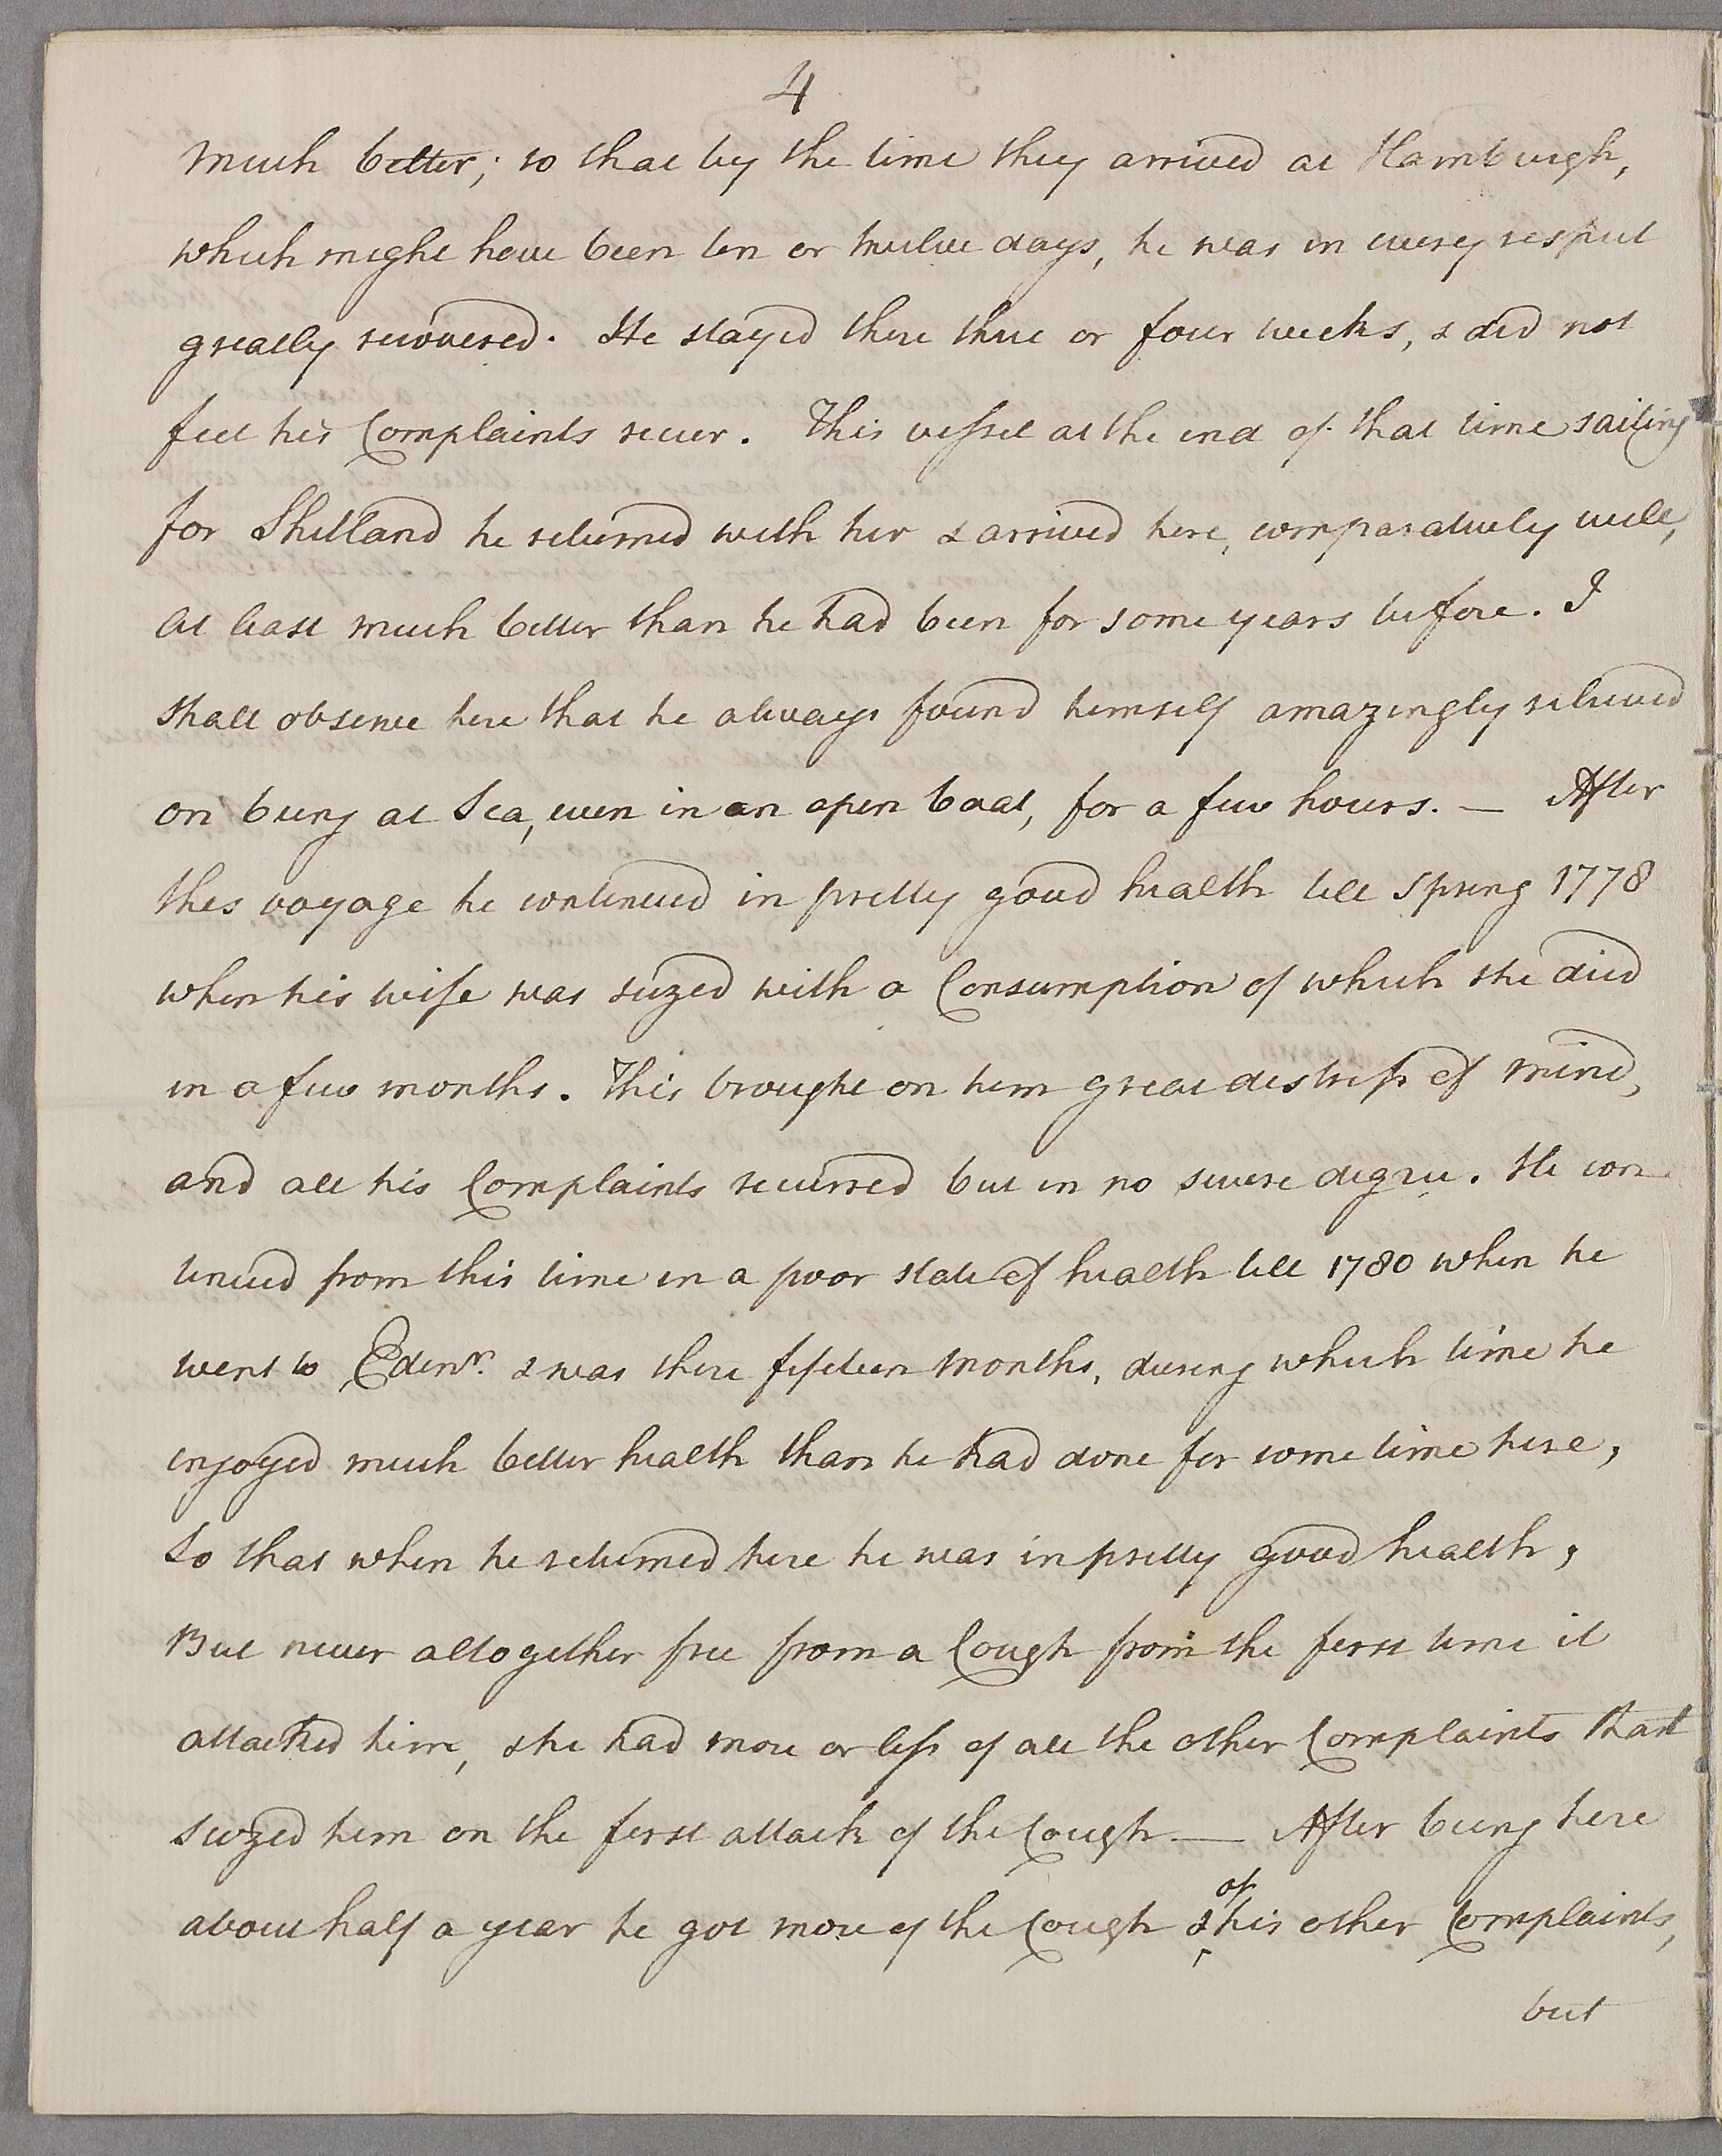 4
much better; so that by the time they arrived at Hamburgh,
which might have been ten or twelve days, he was in every respect
greatly recovered. He stayed there three or four weeks, & did not
feel his Complaints recur. This vessel at the end of that time sailing
for Shetland he returned with her & arrived here, comparatively well,
at least much better than he had been for some years before. I
shall observe here that he always found himself amazingly relieved
on being at Sea, even in an open boat, for a few hours. — After
this voyage he continued in pretty good health till Spring 1778
when his wife was seized with a Consumption of which she died
in a few months. This brought on him great distress of mind,
and all his Complaints recurred but in no severe degree. He con
tinued from this time in a poor state of health till 1780 when he
went to Edinr. & was there fifteen months, during which time he
enjoyed much better health than he had done for some time here,
So that when he returned here he was in pretty good health,
But never altogether free from a Cough from the first time it
attacked him, & he had more or less of all the other Complaints that
seized him on the first attack of the Cough — After being here
about half a year he got more of the Cough & of his other Complaints,
but